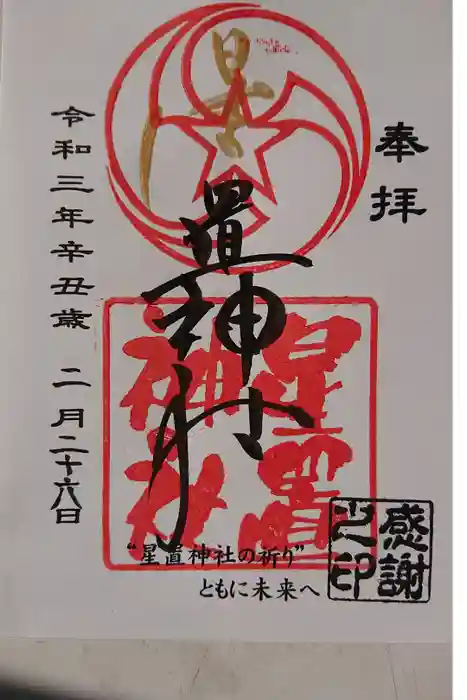 奉拝
星置神社
星置神社
令和三年辛丑歳 二月二十六日
“星置神社の祈り”
ともに未来へ
感謝之印